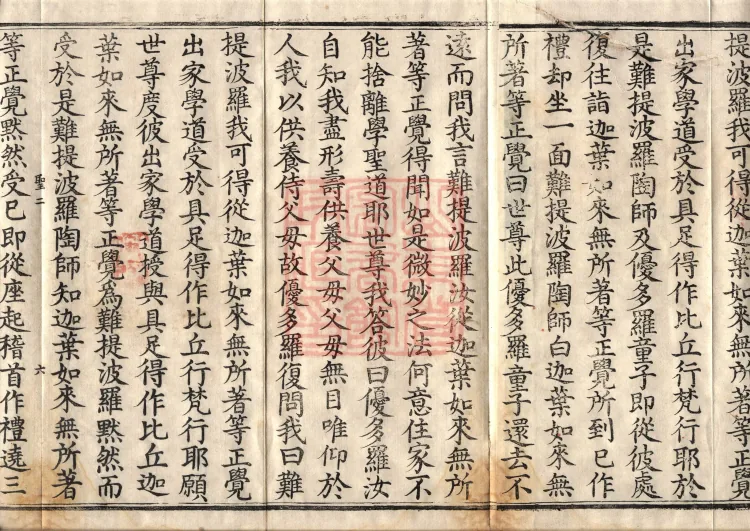 提波羅我可得從迦葉如來無所著等正覺
出家學道受於具足得作比丘行梵行耶於
是難提波羅陶師及優多羅童子即從彼處
復往詣迦葉如來無所著等正覺所到已作
禮却坐一面難提波羅陶師白迦葉如來無
所著等正覺曰世尊此優多羅童子還去不
遠而問我言難提波羅汝從迦葉如來無所
著等正覺得聞如是微妙之法何意住家不
能捨離學聖道耶世尊我答彼曰優多羅汝
自知我盡形壽供養父母父母無目唯仰於
人我以供養侍父母故優多羅復問我曰難
提波羅我可得從迦葉如來無所著等正覺
出家學道受於具足得作比丘行梵行耶願
世尊度彼出家學道授與具足得作比丘迦
葉如來無所著等正覺爲難提波羅默然而
受於是難提波羅陶師知迦葉如來無所著
聖二 六
等正覺黙然受已即從座起稽首作禮遶三